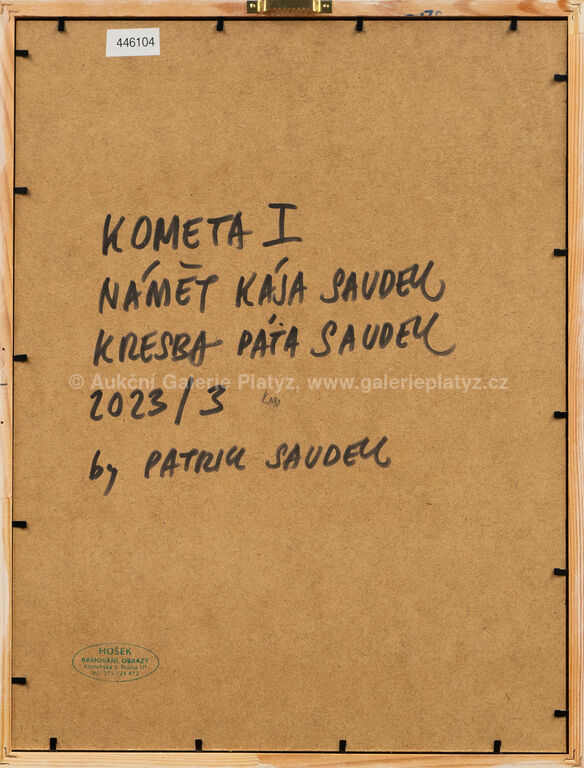 446104
KOMETA I
NÁMĚT KÁJA SAUDEK
KRESBA PÁŤA SAUDEK
© Aukční Galerie Platýz, www.galerieplatyz.cz
2023/3
by PATRIK SAUDEK
HOŠEK
RÁMOVÁNÍ, OBRAZY
Kodaňská 5, Praha 10
tel.: 271 724 472